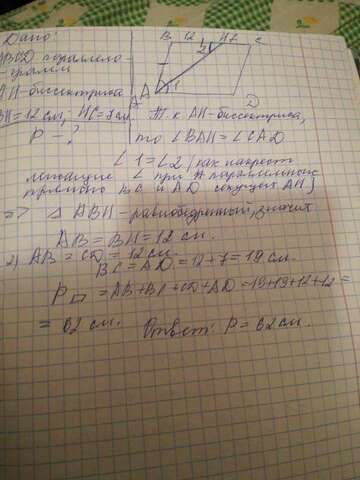 Дано:
ABCD параллело-
грамм
AH-биссектриса
BH=12 см; HC=7 см
P-?
B 12 H 7 C
2
1
A
D
Т.к AH-биссектриса,
то ∠BAH=∠CAD
∠1=∠2 (как накрест
лежащие ∠ при параллельных
прямых BC и AD секущей AH)
=> △ ABH-равнобедренный, значит
AB=BH=12 см.
2) AB=CD=12 см.
BC=AD=12+7=19 см.
P▱=AB+BC+CD+AD=19+19+12+12=
=62 см. Ответ: P=62 см.